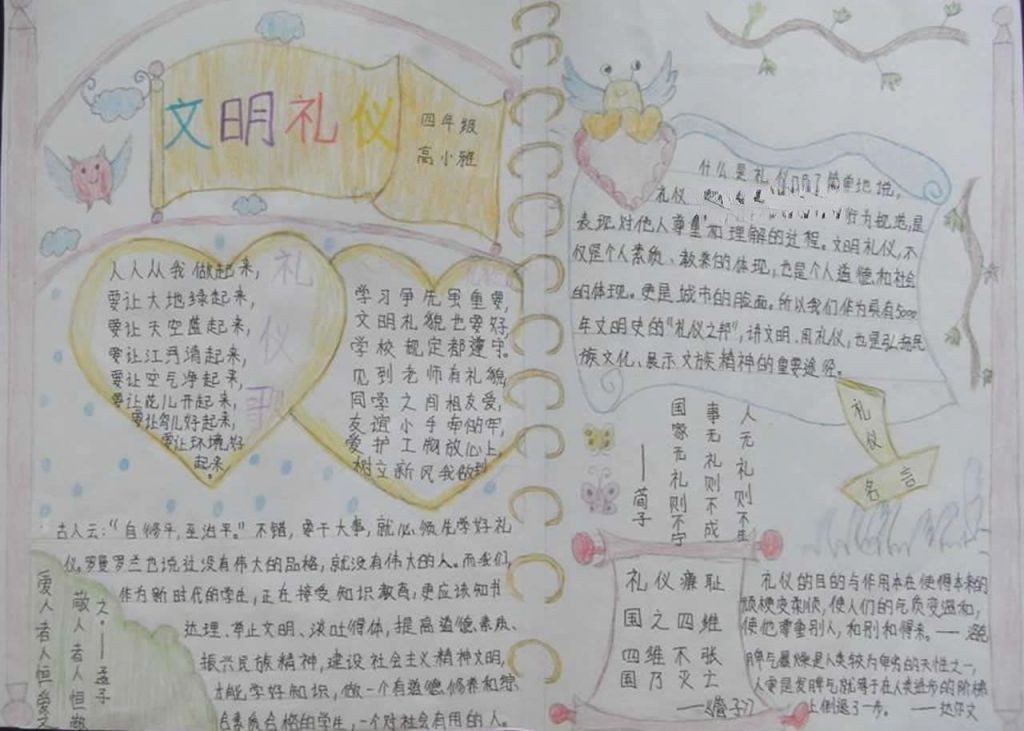 文明礼仪
四年级
高小雅
礼仪
人人从我做起来,
要让大地绿起来,
要让天空蓝起来,
要让江河清起来,
要让空气净起来,
要让花儿开起来,
要让鸟儿好起来,
要让环境好
起来。
学习争先虽重要,
文明礼貌也要好,
学校规定都遵守。
见到老师有礼貌,
同学之间相友爱,
友谊小手牵的牢,
爱护工物放心上,
树立新风我做到
古人云:“自修平,
不错,要干大事,就必须先学好礼
仪。罗曼罗兰也说过没有伟大的品格,就没有伟大的人。而我们,
作为新时代的学生,正在接受知识教育,更应该知书
达理、举止文明、谈吐得体,提高道德素质、
振兴民族精神,建设社会主义精神文明,
才能学好知识,做一个有道德修养和综
合素质合格的学生,一个对社会有用的人。
爱人者人恒爱之
敬人者人恒敬
之·——孟子
什么是礼仪
简单地说,
礼仪
行为规范,是
表现对他人尊重和理解的过程。文明礼仪,不
仅是个人素质、教养的体现,也是个人道德和社会
的体现。更是城市的脸面。所以我们作为具有5000
年文明史的“礼仪之邦”,讲文明、用礼仪,也是弘扬民
族文化、展示文族精神的重要途径。
礼仪
名言
人无礼则不生
事无礼则不成
国家无礼则不宁
——荀子
礼仪廉耻
国之四维
四维不张
国乃灭亡
——《管子》
礼仪的目的与作用本在使得本来的
顽梗变柔顺,使人们的气质变温和,
使他尊重别人,和别和得来。——
脾气暴燥是人类较为卑劣的天性之一,
人要是发脾气就等于在人类进步的阶梯
上倒退了一步。——达尔文